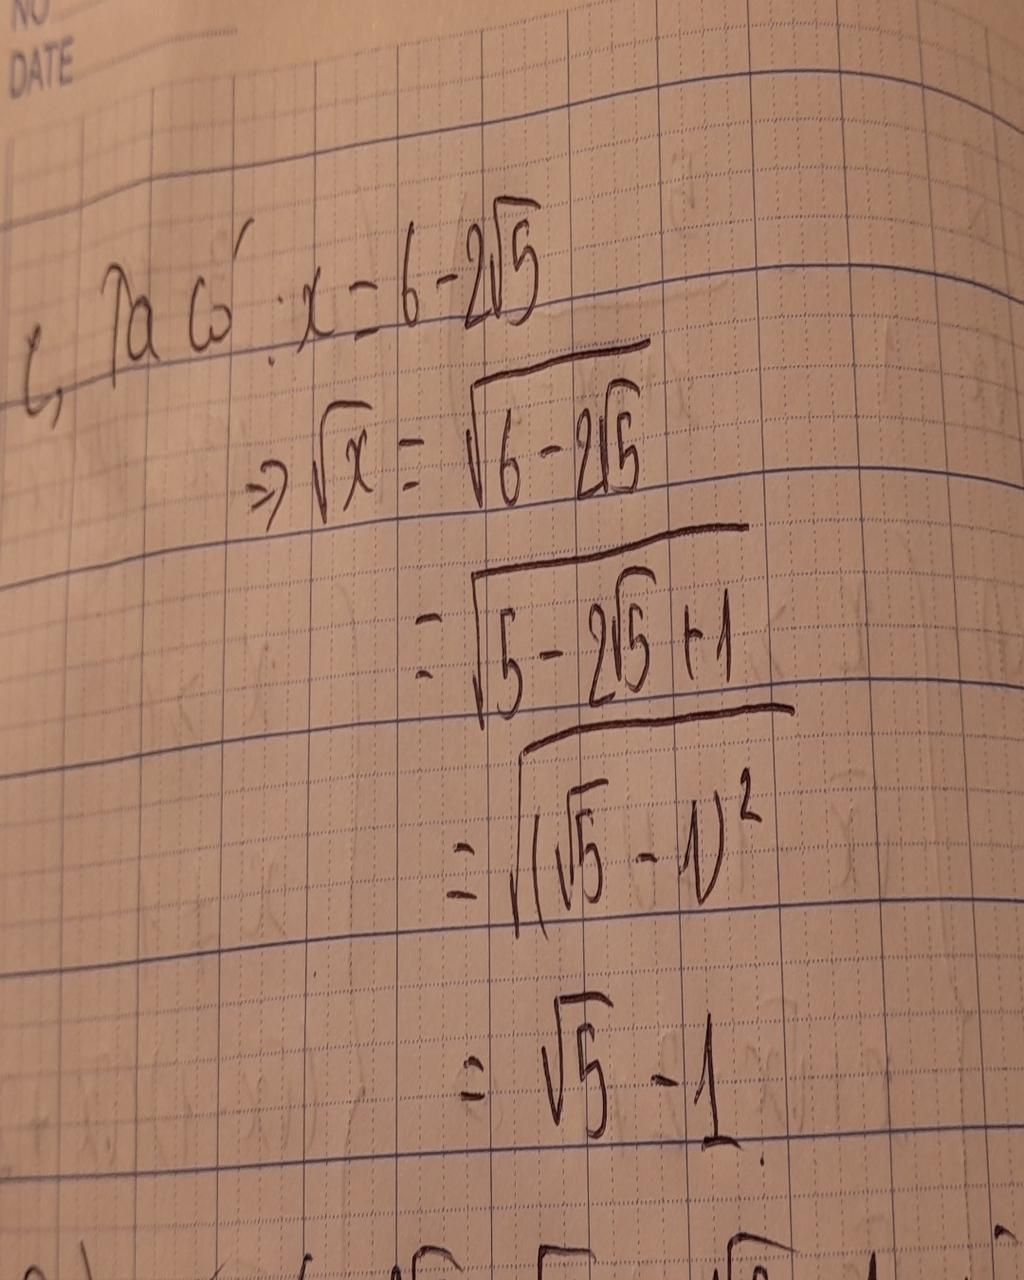 NO
DATE
Ta có: x = 6 - 2√5
⇒ √x = √(6 - 2√5)
= √(5 - 2√5 + 1)
= √((√5 - 1)²)
= √5 - 1